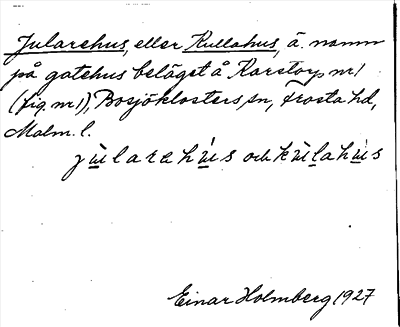 Jularehus, eller Kullahus, ä. namn
på gatehus beläget å Karstorp nr 1
(fig. nr 1), Bosjöklosters sn, Frosta hd,
Malm. l.
jùlarehús och kùlahús
Einar Holmberg 1927